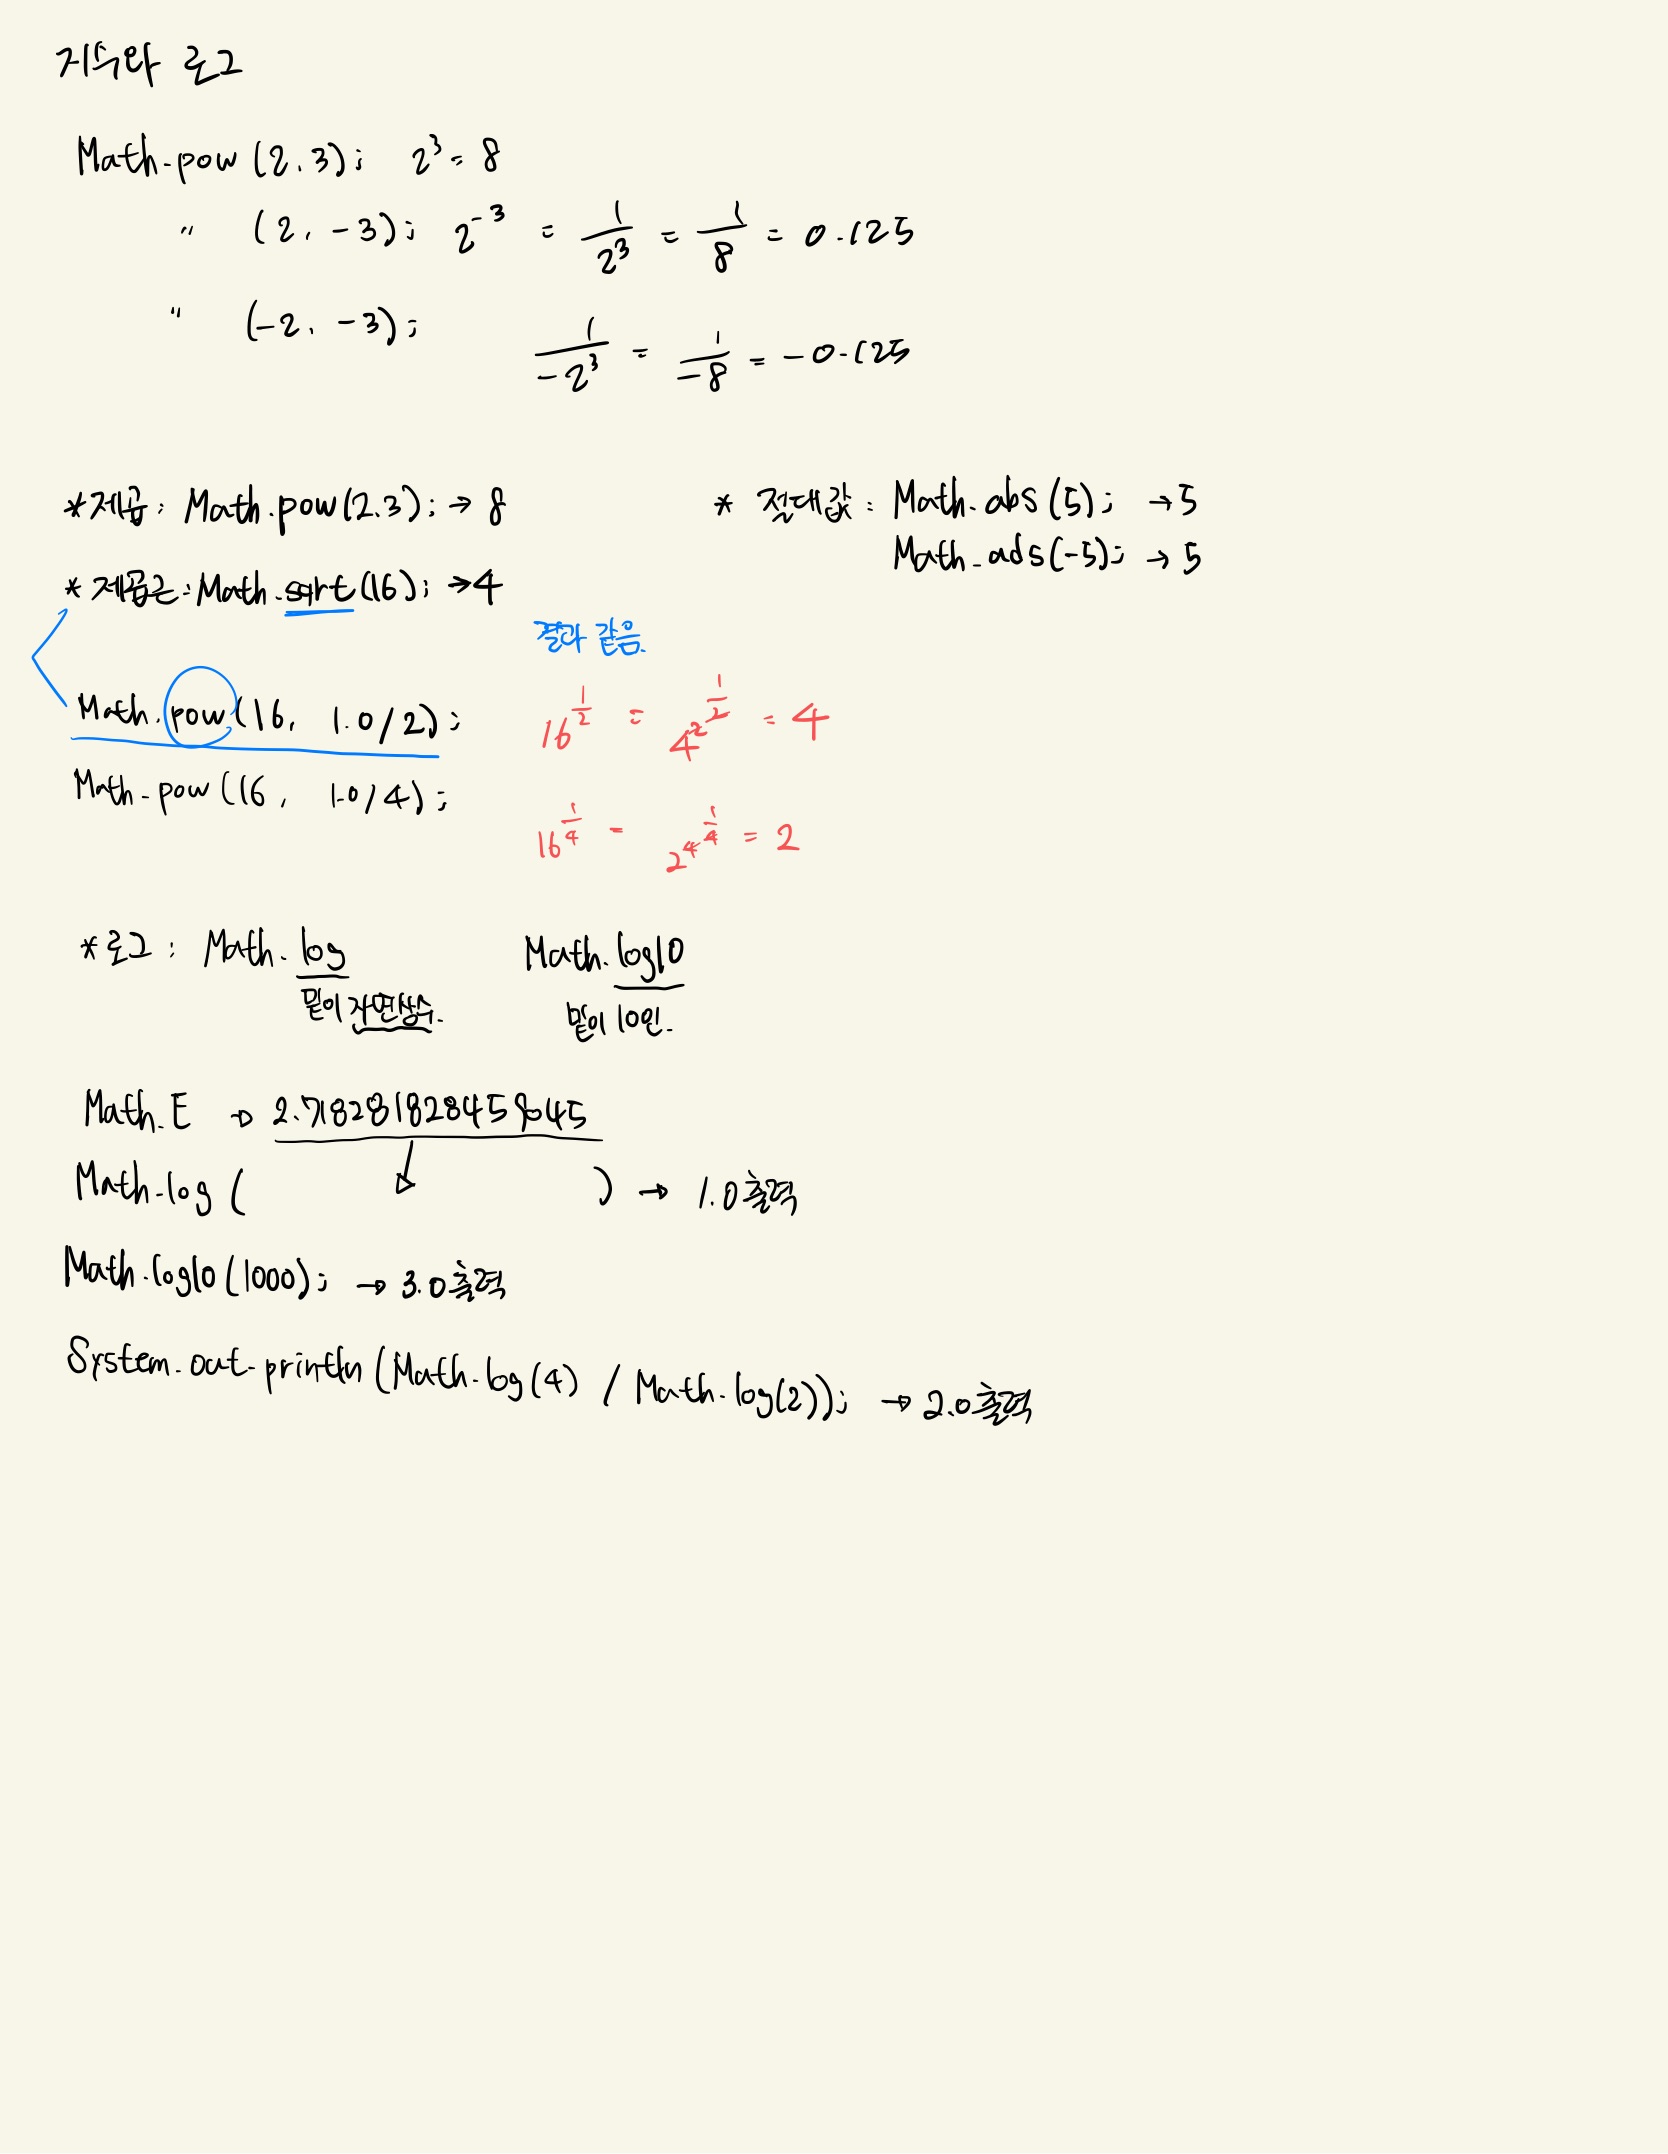 지수와 로그
Math.pow (2.3); 2³ = 8
" (2, -3); 2⁻³ = 1/2³ = 1/8 = 0.125
" (-2, -3); 1/-2³ = 1/-8 = -0.125
*제곱: Math.pow(2.3); → 8
* 제곱근: Math.sqrt(16); → 4
* 절대값: Math.abs(5); → 5
Math.ads(-5); → 5
결과 같음.
Math.pow(16, 1.0/2); 16^1/2 = 4^2^1/2 = 4
Math.pow(16, 1.0/4); 16^1/4 = 2^4^1/4 = 2
*로그: Math.log Math.log10
밑이 자연상수. 밑이 10인.
Math.E → 2.718281828459045
Math.log ( ) → 1.0 출력
Math.log10 (1000); → 3.0 출력
System.out.println (Math.log(4) / Math.log(2)); → 2.0 출력